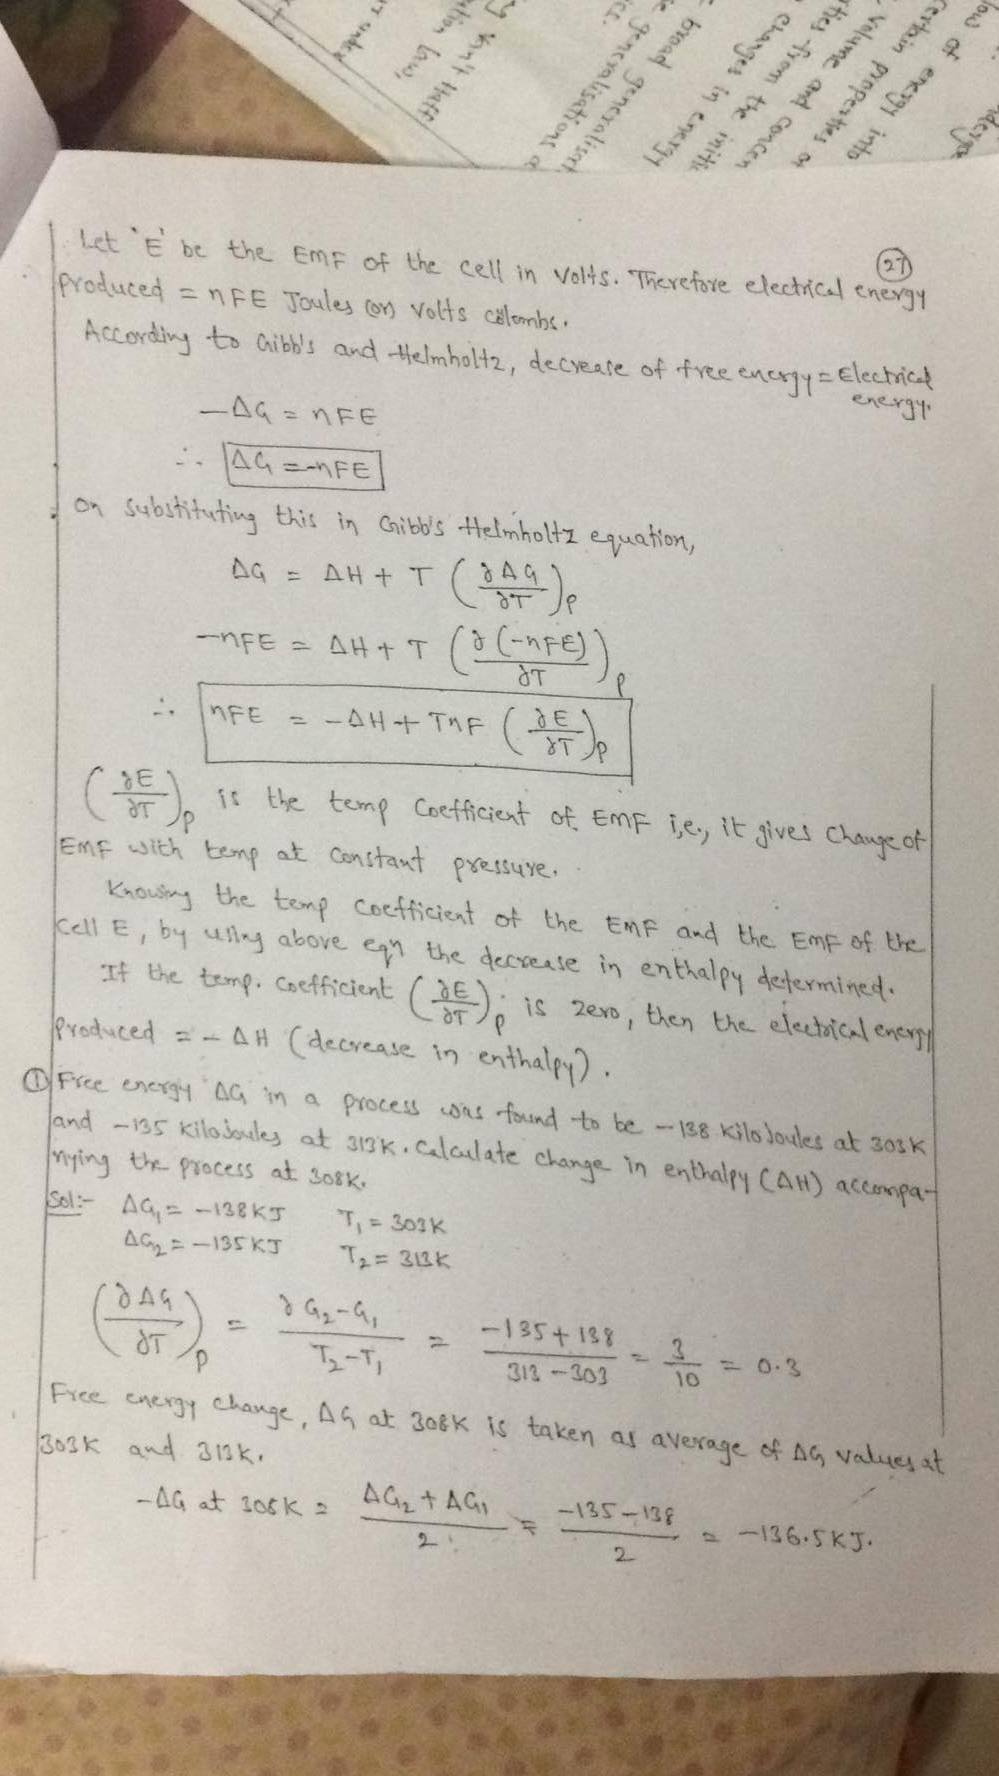 law of energy into
certain properties o
volume and concen
ties from the initi
changes in energy
broad generalisati
generalisations
Van't Hoff
law,
under
27
Let 'E' be the EMF of the cell in volts. Therefore electrical energy
produced = nFE Joules (or) volts colombs.
According to Gibb's and Helmholtz, decrease of free energy = Electrical
energy.
-ΔG = nFE
∴ ΔG = -nFE
On substituting this in Gibb's Helmholtz equation,
ΔG = ΔH + T (∂ΔG/∂T)p
-nFE = ΔH + T (∂(-nFE)/∂T)p
∴ nFE = -ΔH + TnF (∂E/∂T)p
(∂E/∂T)p is the temp coefficient of EMF i,e., it gives change of
EMF with temp at constant pressure.
Knowing the temp coefficient of the EMF and the EMF of the
cell E, by using above eqn the decrease in enthalpy determined.
If the temp. coefficient (∂E/∂T)p is zero, then the electrical energy
produced = -ΔH (decrease in enthalpy).
① Free energy ΔG in a process was found to be -138 kilo Joules at 303K
and -135 kilo Joules at 313K. Calculate change in enthalpy (ΔH) accompa-
nying the process at 308K.
Sol:- ΔG₁ = -138KJ T₁ = 303K
ΔG₂ = -135KJ T₂ = 313K
(∂ΔG/∂T)p = ∂G₂-G₁/T₂-T₁ = -135+138/313-303 = 3/10 = 0.3
Free energy change, ΔG at 308K is taken as average of ΔG values at
303K and 313K.
-ΔG at 308K = ΔG₂ + ΔG₁/2 = -135-138/2 = -136.5KJ.